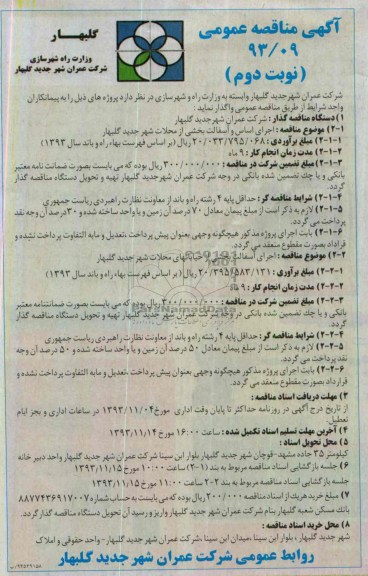 آگهی مناقصه عمومی
۹۳/۰۹
(نوبت دوم)
گلبهـار
وزارت راه شهرسازی
شرکت عمران شهر جدید گلبهار
شرکت عمران شهرجدید گلبهار وابسته به وزارت راه و شهرسازی در نظر دارد پروژه های ذیل را به پیمانکاران
واجد شرایط از طریق مناقصه عمومی واگذار نماید
۱) دستگاه مناقصه گذار : شرکت عمران شهرجدید گلبهار
۲-۱) موضوع مناقصه : اجرای اساس و آسفالت بخشی از محلات شهر جدید گلبهار
۲-۱-۱) مبلغ برآوردی : ۲۰/۰۳۳/۷۹۵/۰۶۸ ریال (بر اساس فهرست بهاء راه و باند سال ۱۳۹۳)
۲-۱-۲) مدت زمان انجام کار : ۹ ماه
۲-۱-۳) مبلغ تضمین شرکت در مناقصه : ۳۰۰/۰۰۰/۰۰۰ ریال بوده که می بایست بصورت ضمانت نامه معتبر
بانکی و یا چک تضمین شده بانکی در وجه شرکت عمران شهرجدید گلبهار تهیه و تحویل دستگاه مناقصه گذار
گردد.
۲-۱-۴) شرایط مناقصه گر : حداقل پایه ۴ رشته راه و باند از معاونت نظارت راهبردی ریاست جمهوری
۲-۱-۵) لازم به ذکر است از مبلغ پیمان معادل ۷۰ درصد آن زمین و یا واحد ساخته شده و ۳۰درصد آن وجه نقد
پرداخت می گردد.
۲-۱-۶) بابت اجرای پروژه مذکور هیچگونه وجهی بعنوان پیش پرداخت ،تعدیل و مابه التفاوت پرداخت نشده و
قراداد بصورت مقطوع منعقد می گردد.
۲-۲) موضوع مناقصه : اجرای آسفالت خیابانهای محلات شهر جدید گلبهار
۲-۲-۱) مبلغ برآوری : ۲۰/۳۹۵/۵۸۳/۱۳۱ ریال (بر اساس فهرست بهاء راه و باند سال ۱۳۹۳)
۲-۲-۲) مدت زمان انجام کار : ۹ ماه
۲-۲-۳) مبلغ تضمین شرکت در مناقصه : ۳۰۰/۰۰۰/۰۰۰ ریال بوده که می بایست بصورت ضمانتنامه معتبر
بانکی و یا چک تضمین شده بانکی در وجه شرکت عمران شهر جدید گلبهار تهیه و تحویل دستگاه مناقصه گذار
گردد.
۲-۲-۴) شرایط مناقصه گر : حداقل پایه ۴ رشته راه و باند از معاونت نظارت راهبردی ریاست جمهوری
۲-۲-۵) لازم به ذکر است از مبلغ پیمان معادل ۵۰ درصد آن زمین و یا واحد ساخته شده و ۵۰ درصد آن وجه
نقد پرداخت می گردد.
۲-۲-۶) بابت اجرای پروژه مذکور هیچگونه وجهی بعنوان پیش پرداخت ،تعدیل و مابه التفاوت پرداخت نشده و
قرارداد بصورت مقطوع منعقد می گردد.
۳) مهلت دریافت اسناد مناقصه :
از تاریخ درج آگهی در روزنامه حداکثر تا پایان وقت اداری مورخ ۱۳۹۳/۱۱/۰۴ در ساعات اداری و بجز ایام
تعطیل.
۴) آخرین مهلت تسلیم اسناد تکمیل شده : ساعت ۱۶:۰۰ مورخ ۱۳۹۳/۱۱/۱۴
۵) محل تحویل اسناد :
کیلومتر ۳۵ جاده مشهد-قوچان شهر جدید گلبهار بلوار ابن سینا شرکت عمران شهر جدید گلبهار واحد دبیر خانه
۶) جلسه بازگشایی اسناد مناقصه مربوط به بند (۱-۲) ساعت ۱۰:۰۰ مورخ ۱۳۹۳/۱۱/۱۵
جلسه بازگشایی اسناد مناقصه مربوط به بند ۲-۲ ساعت ۱۱:۰۰ مورخ ۱۳۹۳/۱۱/۱۵
۷) مبلغ خرید هریک از اسناد مناقصه ۲۰۰/۰۰۰ ریال بوده که می بایست به حساب شماره ۸۸۷۷۴۳۶۹۱۷۰۰۷
بانک مسکن شعبه گلبهار بنام شرکت عمران شهر جدید گلبهار واریز و رسید آن تحویل دستگاه مناقصه گذار گردد.
۸) محل خرید اسناد مناقصه :
شهر جدید گلبهار ، بلوار ابن سینا ،میدان ابن سینا ،شرکت عمران شهر جدید گلبهار- واحد حقوقی و املاک
روابط عمومی شرکت عمران شهر جدید گلبهار